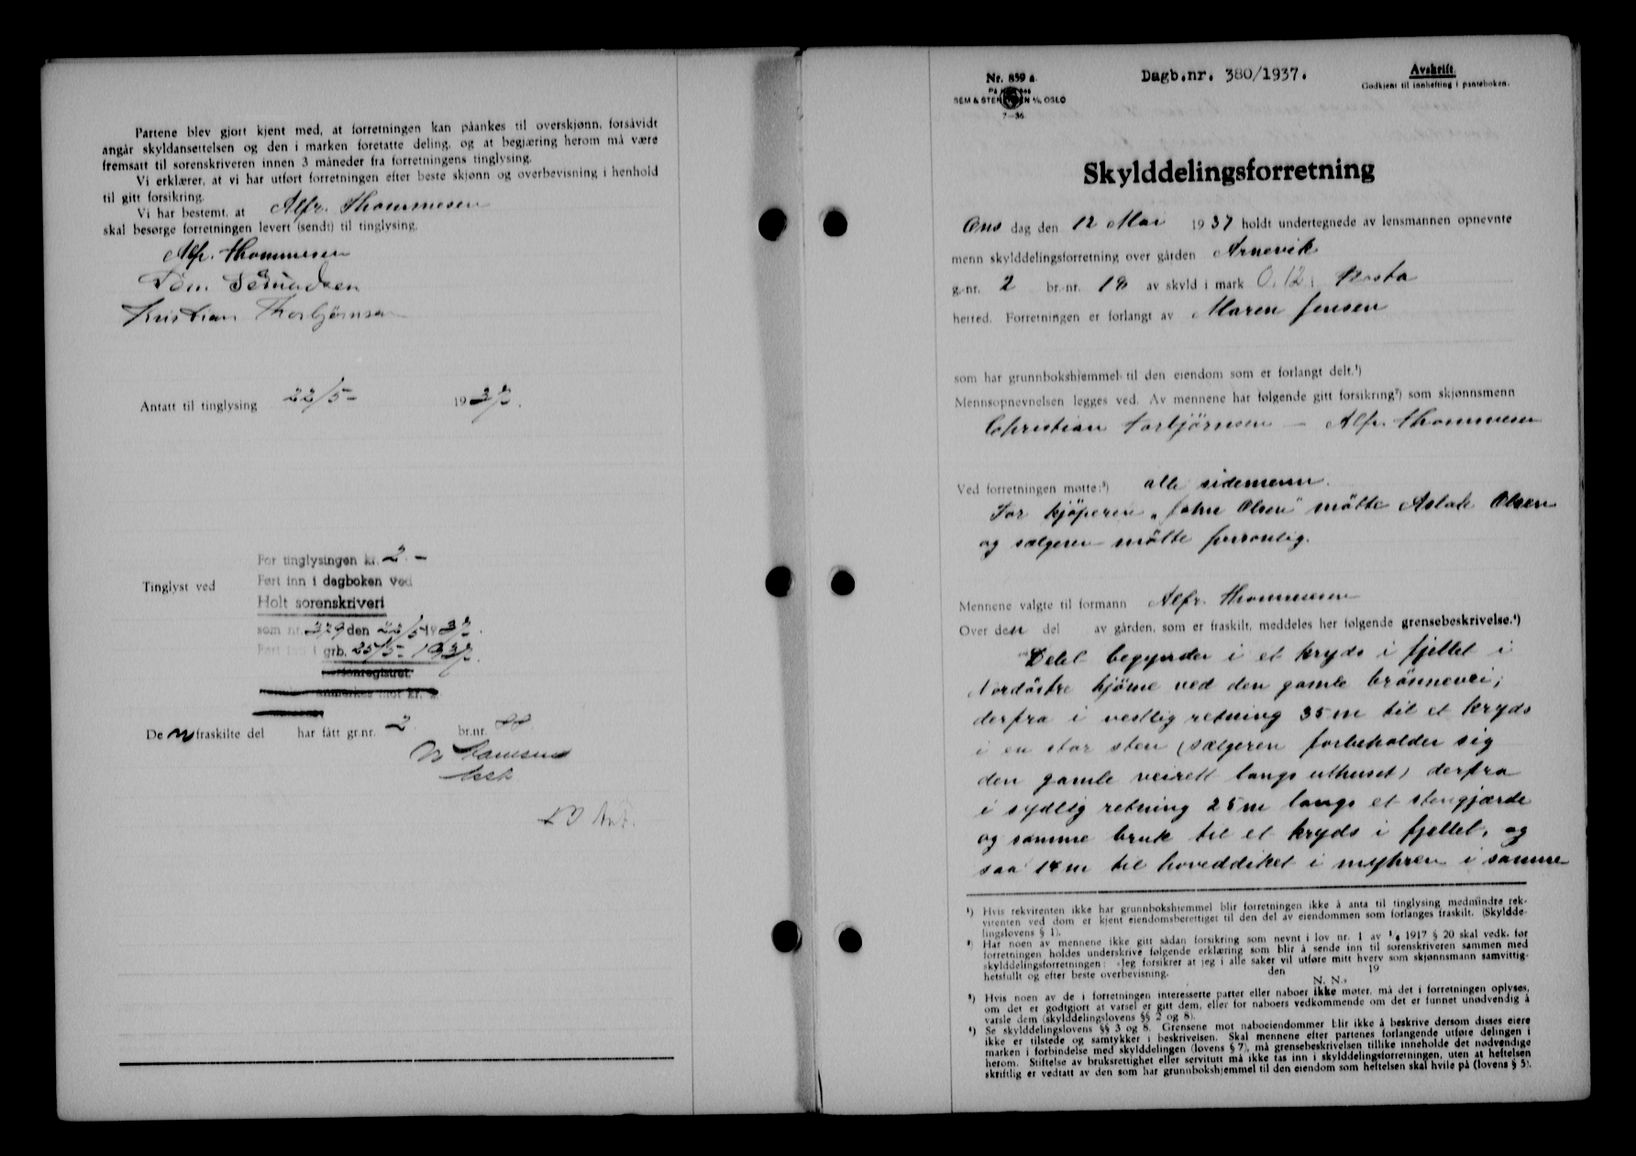 Partene blev gjort kjent med, at forretningen kan påankes til overskjønn, forsåvidt
angår skyldansettelsen og den i marken foretatte deling, og at begjæring herom må være
fremsatt til sorenskriveren innen 3 måneder fra forretningens tinglysing.
Vi erklærer, at vi har utført forretningen efter beste skjønn og overbevisning i henhold
til gitt forsikring.
Vi har bestemt, at Alfr. Thommesen
skal besørge forretningen levert (sendt) til tinglysing.
Alfr. Thommesen
Kristian Thorbjørnsen
Antatt til tinglysing 22/5- 1937.
For tinglysingen kr. 2.-
Tinglyst ved Ført inn i dagboken ved
Holt sorenskriveri
som nr. 379 den 22/5 1937.
Ført inn i grb. 25/5- 1937.
De n fraskilte del har fått gr.nr. 2 br.nr.
Nr. 859 a
SEM & STENERSEN A/S, OSLO
7-36
Dagb.nr. 380/1937.
Avskrift
Godkjent til innhefting i panteboken.
Skylddelingsforretning
Ons dag den 12 Mai 1937 holdt undertegnede av lensmannen opnevnte
menn skylddelingsforretning over gården Arnevik
g.-nr. 2 br.-nr. 18 av skyld i mark 0.12 i
herred. Forretningen er forlangt av Maren Jensen
som har grunnbokshjemmel til den eiendom som er forlangt delt.¹)
Mennsopnevnelsen legges ved. Av mennene har følgende gitt forsikring²) som skjønnsmenn
Christian Torbjörnsen - Alfr. Thommesen
Ved forretningen møtte:³) alle sidemenn.
For kjöperen „John Olsen" mötte Aslak Olsen
og sælgeren mötte personlig.
Mennene valgte til formann Alfr. Thommesen
Over den del av gården, som er fraskilt, meddeles her følgende grensebeskrivelse.⁴)
Delet begynder i et kryds i fjellet i
Nordöstre hjörne ved den gamle brönnevei;
derfra i vestlig retning 35 m til et kryds
i en stor sten (sælgeren forbeholder sig
den gamle veirett langs uthuset) derfra
i sydlig retning 25 m langs et stengjærde
og samme bruk til et kryds i fjellet, og
saa 14 m til hoveddiket i myhren i samme
¹) Hvis rekvirenten ikke har grunnbokshjemmel blir forretningen ikke å anta til tinglysing medmindre rek-
virenten ved dom er kjent eiendomsberettiget til den del av eiendommen som forlanges fraskilt. (Skyldde-
lingslovens § 1).
²) Har noen av mennene ikke gitt sådan forsikring som nevnt i lov nr. 1 av 1/6 1917 § 20 skal vedk. før
forretningen holdes underskrive følgende erklæring som blir å sende inn til sorenskriveren sammen med
skylddelingsforretningen: «Jeg forsikrer at jeg i alle saker vil utføre mitt hverv som skjønnsmann samvittig-
hetsfullt og efter beste overbevisning. den 19
N. N.»
³) Hvis noen av de i forretningen interesserte parter eller naboer ikke møter, må det i forretningen oplyses,
om det er godtgjort at varsel er gitt dem, eller for naboers vedkommende om det er funnet unødvendig å
varsle dem (skylddelingslovens §§ 2 og 8).
⁴) Se skylddelingslovens §§ 3 og 8. Grensene mot naboeiendommer blir ikke å beskrive dersom disses eiere
ikke er tilstede og samtykker i beskrivelsen. Skal mennene efter partenes forlangende utføre delingen i
marken i forbindelse med skylddelingen (lovens § 7), må grensebeskrivelsen tillike inneholde det nødvendige
herom. Stiftelse av bruksrettighet eller servitutt må ikke tas inn i skylddelingsforretningen, uten at heftelsen
skriftlig er vedtatt av den som har grunnbokshjemmel til den eiendom som heftelsen skal hvile på (lovens § 5).